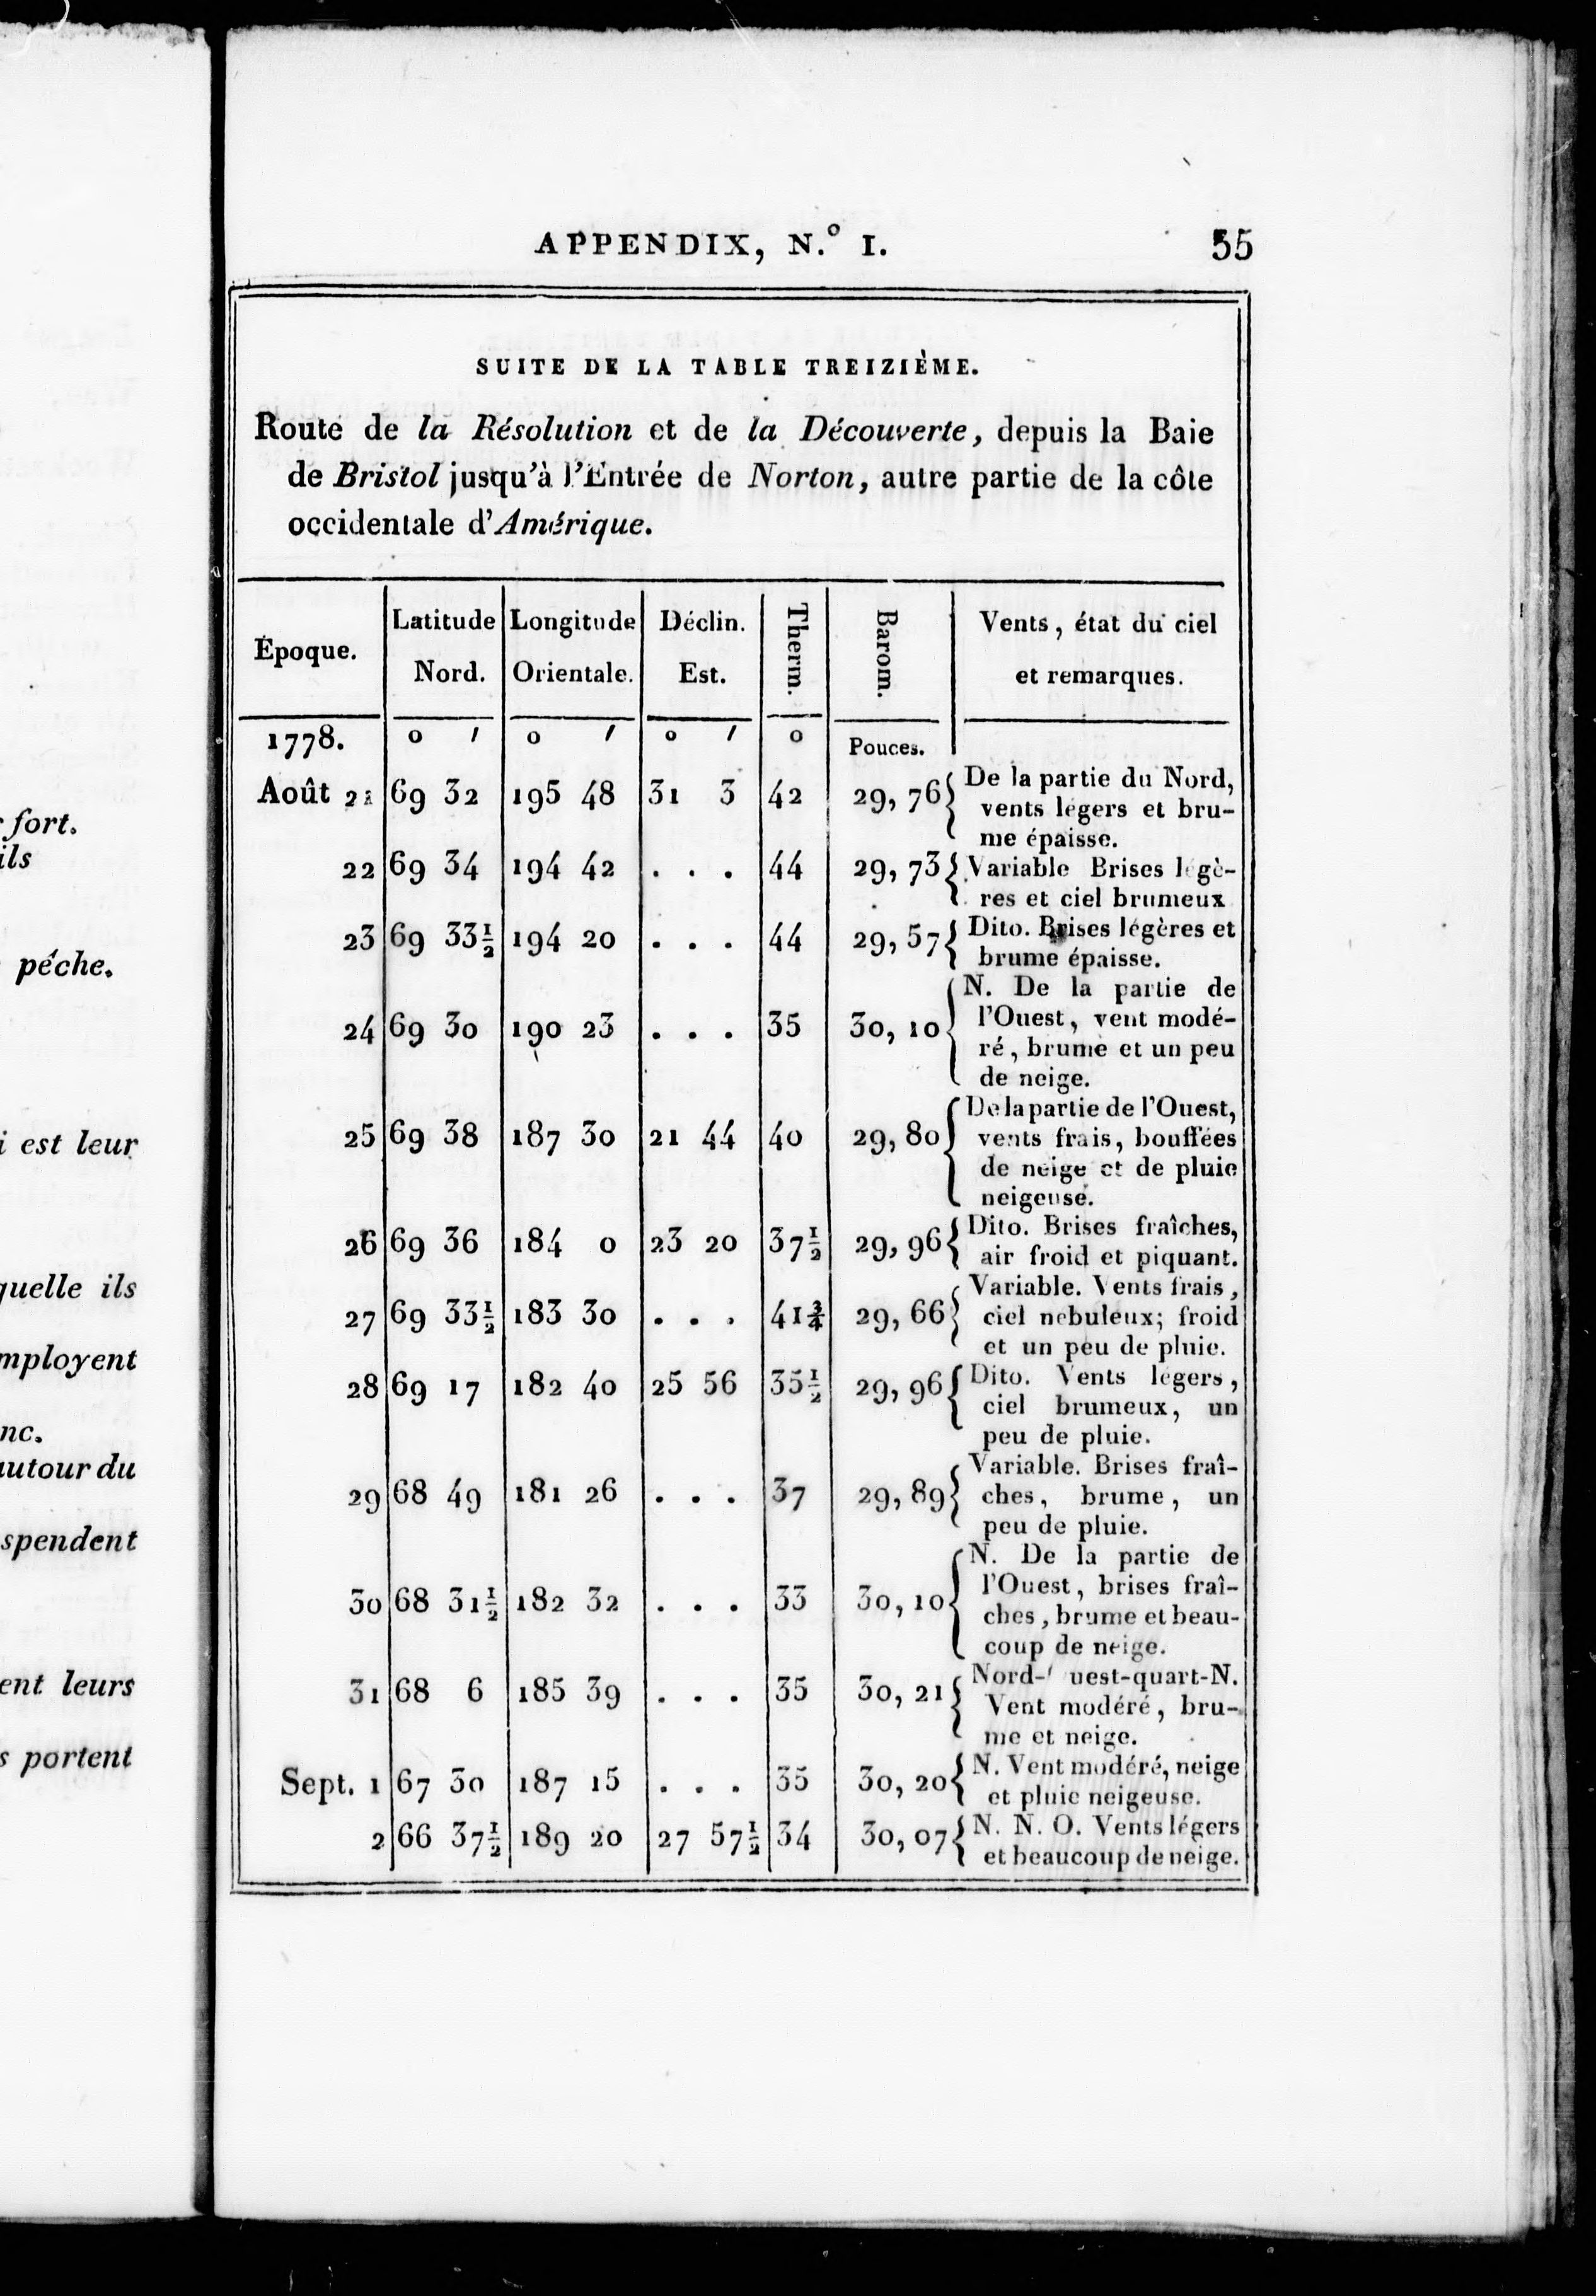 fort.
ils
pêche.
est leur
quelle ils
employent
nc.
autour du
spendent
ent leurs
portent
APPENDIX, N.º I. 55
SUITE DE LA TABLE TREIZIÈME.
Route de la Résolution et de la Découverte, depuis la Baie
de Bristol jusqu'à l'Entrée de Norton, autre partie de la côte
occidentale d'Amérique.
Époque. Latitude Nord. Longitude Orientale. Déclin. Est. Therm. Barom. Vents, état du ciel et remarques.
1778. o ′ o ′ o ′ o Pouces.
Août 21 69 32 195 48 31 3 42 29, 76 { De la partie du Nord,
vents légers et bru-
me épaisse.
22 69 34 194 42 . . . 44 29, 73 { Variable Brises légè-
res et ciel brumeux
23 69 33½ 194 20 . . . 44 29, 57 { Dito. Brises légères et
brume épaisse.
24 69 30 190 23 . . . 35 30, 10 { N. De la partie de
l'Ouest, vent modé-
ré, brume et un peu
de neige.
25 69 38 187 30 21 44 40 29, 80 { De la partie de l'Ouest,
vents frais, bouffées
de neige et de pluie
neigeuse.
26 69 36 184 0 23 20 37½ 29, 96 { Dito. Brises fraîches,
air froid et piquant.
27 69 33½ 183 30 . . . 41¾ 29, 66 { Variable. Vents frais,
ciel nebuleux; froid
et un peu de pluie.
28 69 17 182 40 25 56 35½ 29, 96 { Dito. Vents légers,
ciel brumeux, un
peu de pluie.
29 68 49 181 26 . . . 37 29, 89 { Variable. Brises fraî-
ches, brume, un
peu de pluie.
30 68 31½ 182 32 . . . 33 30, 10 { N. De la partie de
l'Ouest, brises fraî-
ches, brume et beau-
coup de neige.
31 68 6 185 39 . . . 35 30, 21 { Nord- uest-quart-N.
Vent modéré, bru-
me et neige.
Sept. 1 67 30 187 15 . . . 35 30, 20 { N. Vent modéré, neige
et pluie neigeuse.
2 66 37½ 189 20 27 57½ 34 30, 07 { N. N. O. Vents légers
et beaucoup de neige.